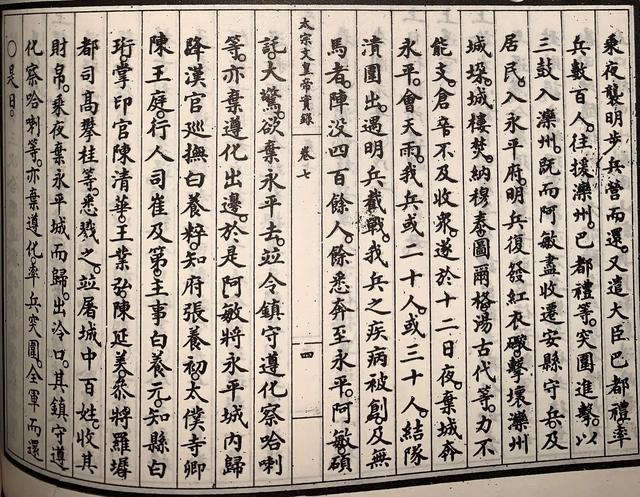 乘夜襲明步兵營而還。又遣大臣巴都禮率
兵數百人。往援灤州。巴都禮等。突圍進擊。以
三鼓入灤州。既而阿敏盡收遷安縣守兵。及
居民。入永平府。明兵復發紅衣礮。擊壞灤州
城垛。城樓焚。納穆泰。圖爾格。湯古代等。力不
能支。倉卒不及收衆。遂於十二日夜。棄城奔
永平。會天雨。我兵或二十人。或三十人。結隊
潰圍出。遇明兵截戰。我兵之疾病被創。及無
馬者。陣没四百餘人。餘悉奔至永平。阿敏。碩
太宗文皇帝實錄 卷七 四
託。大驚。欲棄永平去。竝令鎮守遵化察哈喇
等。亦棄遵化出邊。於是阿敏將永平城內歸
降漢官巡撫白養粹。知府張養初。太僕寺卿
陳王庭。行人司崔及第。主事白養元。知縣白
珩。掌印官陳清華。王業弘。陳延美。叅將羅墀
都司高攀桂等。悉戮之。竝屠城中百姓。收其
財帛。乘夜棄永平城而歸。出冷口。其鎮守遵
化察哈喇等。亦棄遵化。率兵突圍。全軍而還
○是日。